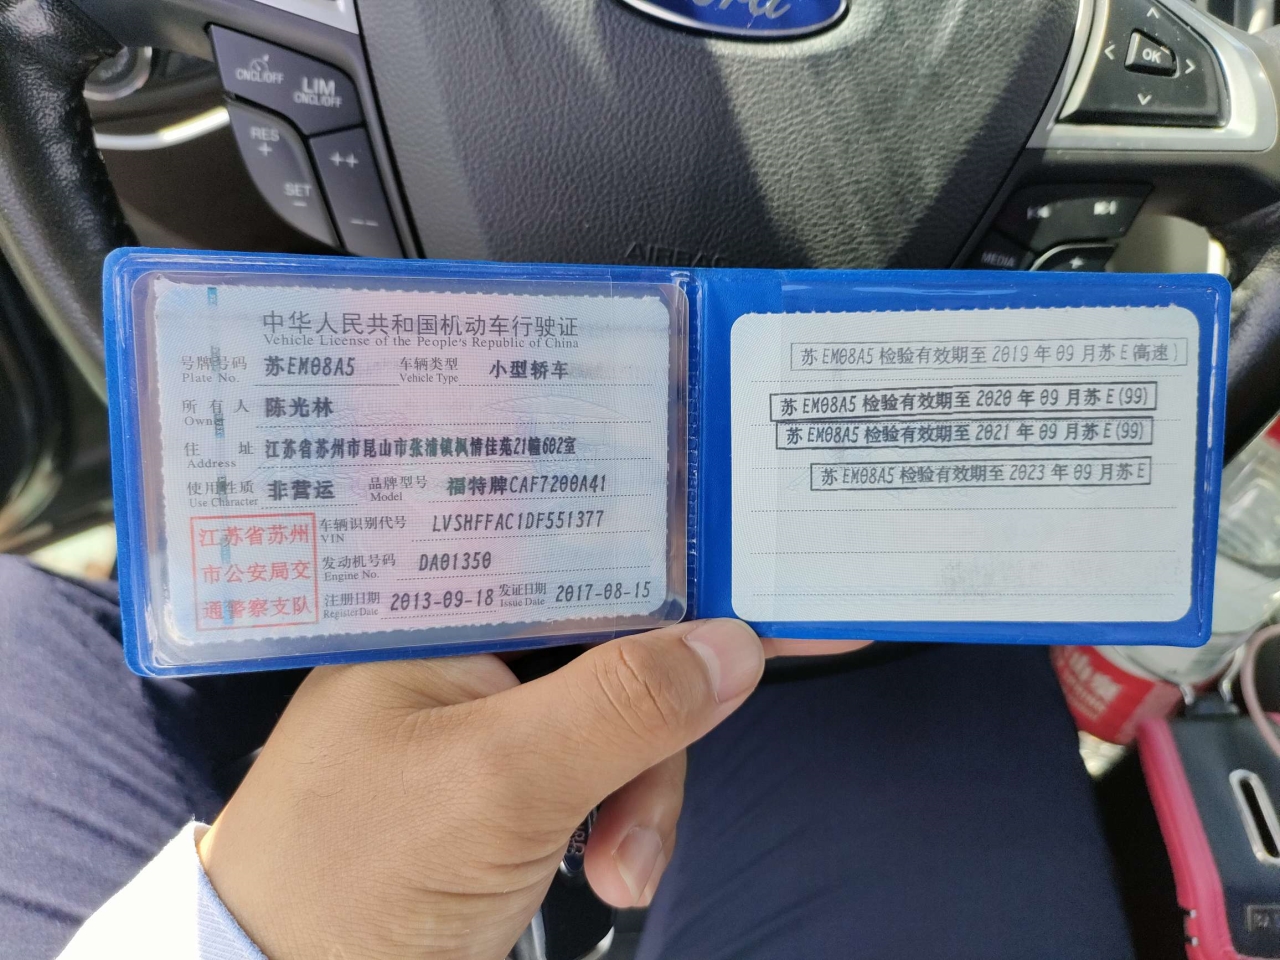 Ford
CNCL/OFF
LIM
CNCL/OFF
RES
+
++
SET
−
−−
OK
AIRBAG
MEDIA
中华人民共和国机动车行驶证
Vehicle License of the People's Republic of China
号牌号码 苏EM08A5 车辆类型 小型轿车
Plate No. Vehicle Type
所有人 陈光林
Owner
住址 江苏省苏州市昆山市张浦镇枫情佳苑21幢602室
Address
使用性质 非营运 品牌型号 福特牌CAF7200A41
Use Character Model
江苏省苏州
市公安局交
通警察支队
车辆识别代号 LVSHFFAC1DF551377
VIN
发动机号码 DA01350
Engine No.
注册日期 2013-09-18 发证日期 2017-08-15
Register Date Issue Date
苏EM08A5检验有效期至2019年09月苏E(高速)
苏EM08A5检验有效期至2020年09月苏E(99)
苏EM08A5检验有效期至2021年09月苏E(99)
苏EM08A5检验有效期至2023年09月苏E